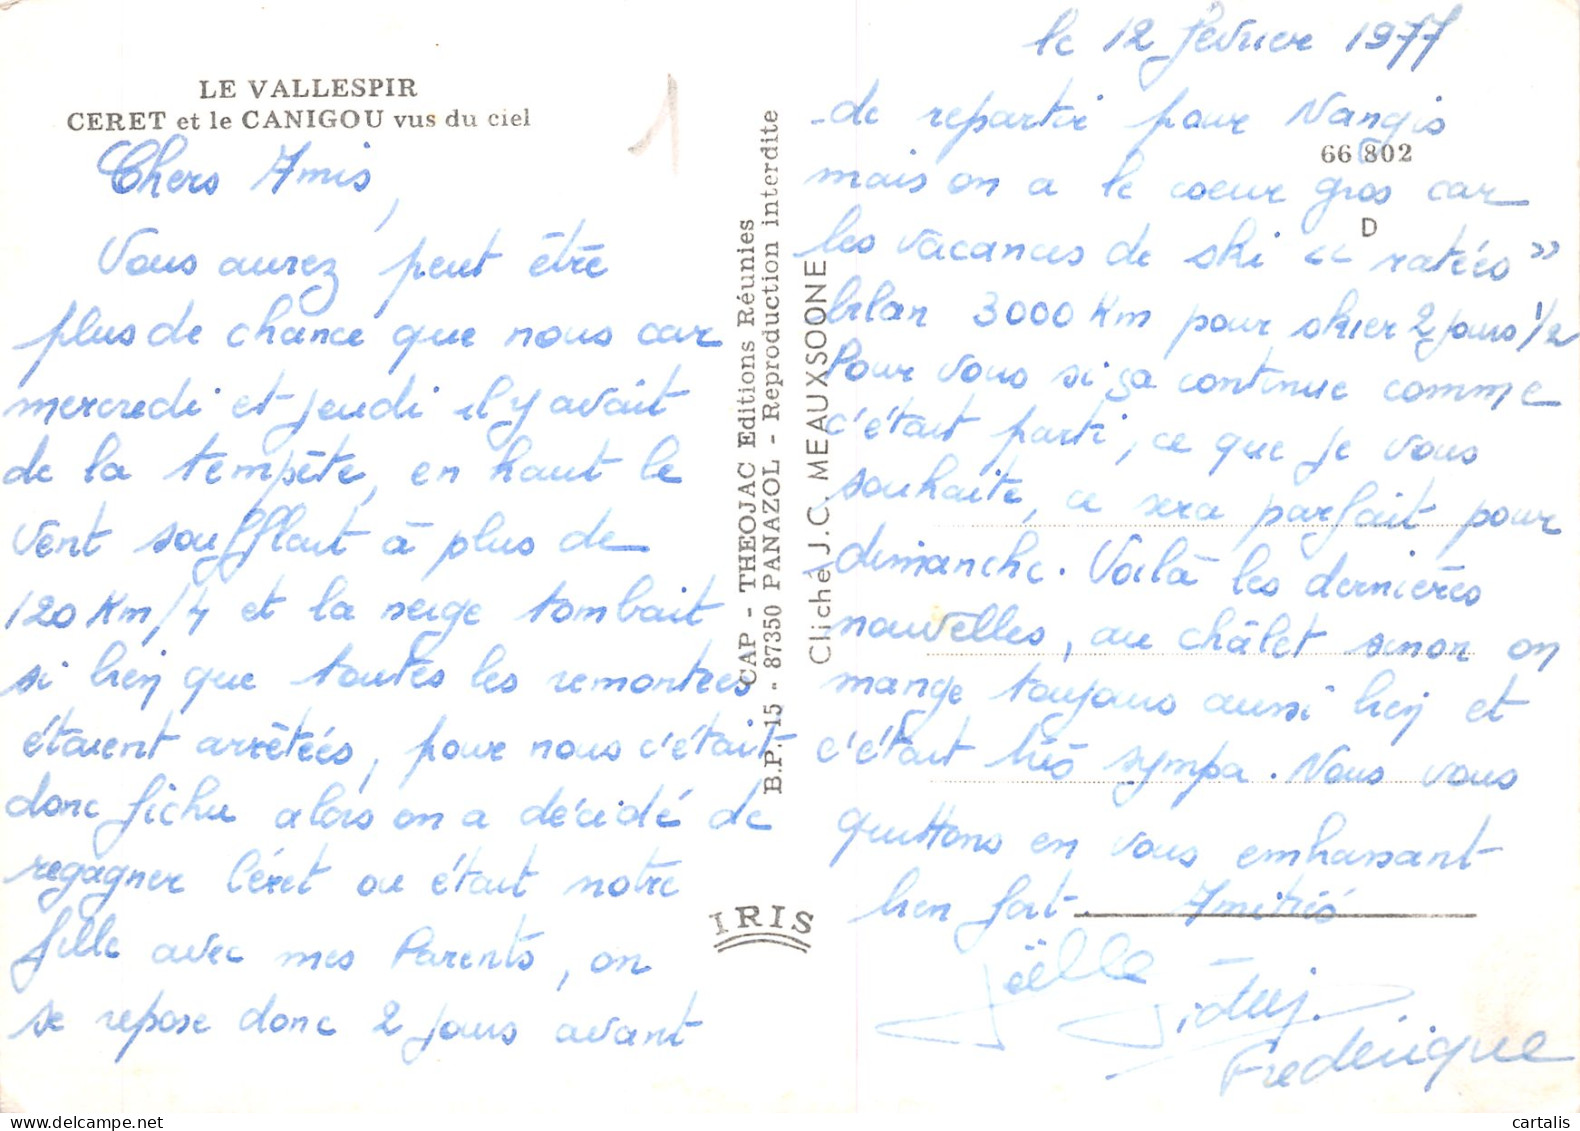 LE VALLESPIR
CERET et le CANIGOU vus du ciel
Chers Amis,
Vous aurez peut être
plus de chance que nous car
mercredi et jeudi il y avait
de la tempête, en haut le
vent soufflait à plus de
120 Km/h et la neige tombait
si bien que toutes les remontées
étaient arrêtées, pour nous c'était
donc fichu alors on a décidé de
regagner Céret ou était notre
fille avec mes Parents, on
se repose donc 2 jours avant
1
CAP - THEOJAC Editions Réunies
B.P. 15 - 87350 PANAZOL - Reproduction interdite
Cliché J.C. MEAUXSOONE
IRIS
le 12 février 1977
de repartir pour Nangis
66 802
mais on a le coeur gros car
D
les vacances de ski "ratées"
bilan 3000 Km pour skier 2 jours 1/2
Pour vous si ça continue comme
c'était parti, ce que je vous
souhaite, ce sera parfait pour
dimanche. Voilà les dernières
nouvelles, au châlet sinon on
mange toujours aussi bien et
c'était très sympa. Nous vous
quittons en vous embrassant
bien fort. Amitiés
Joëlle
Frédérique
cartalis